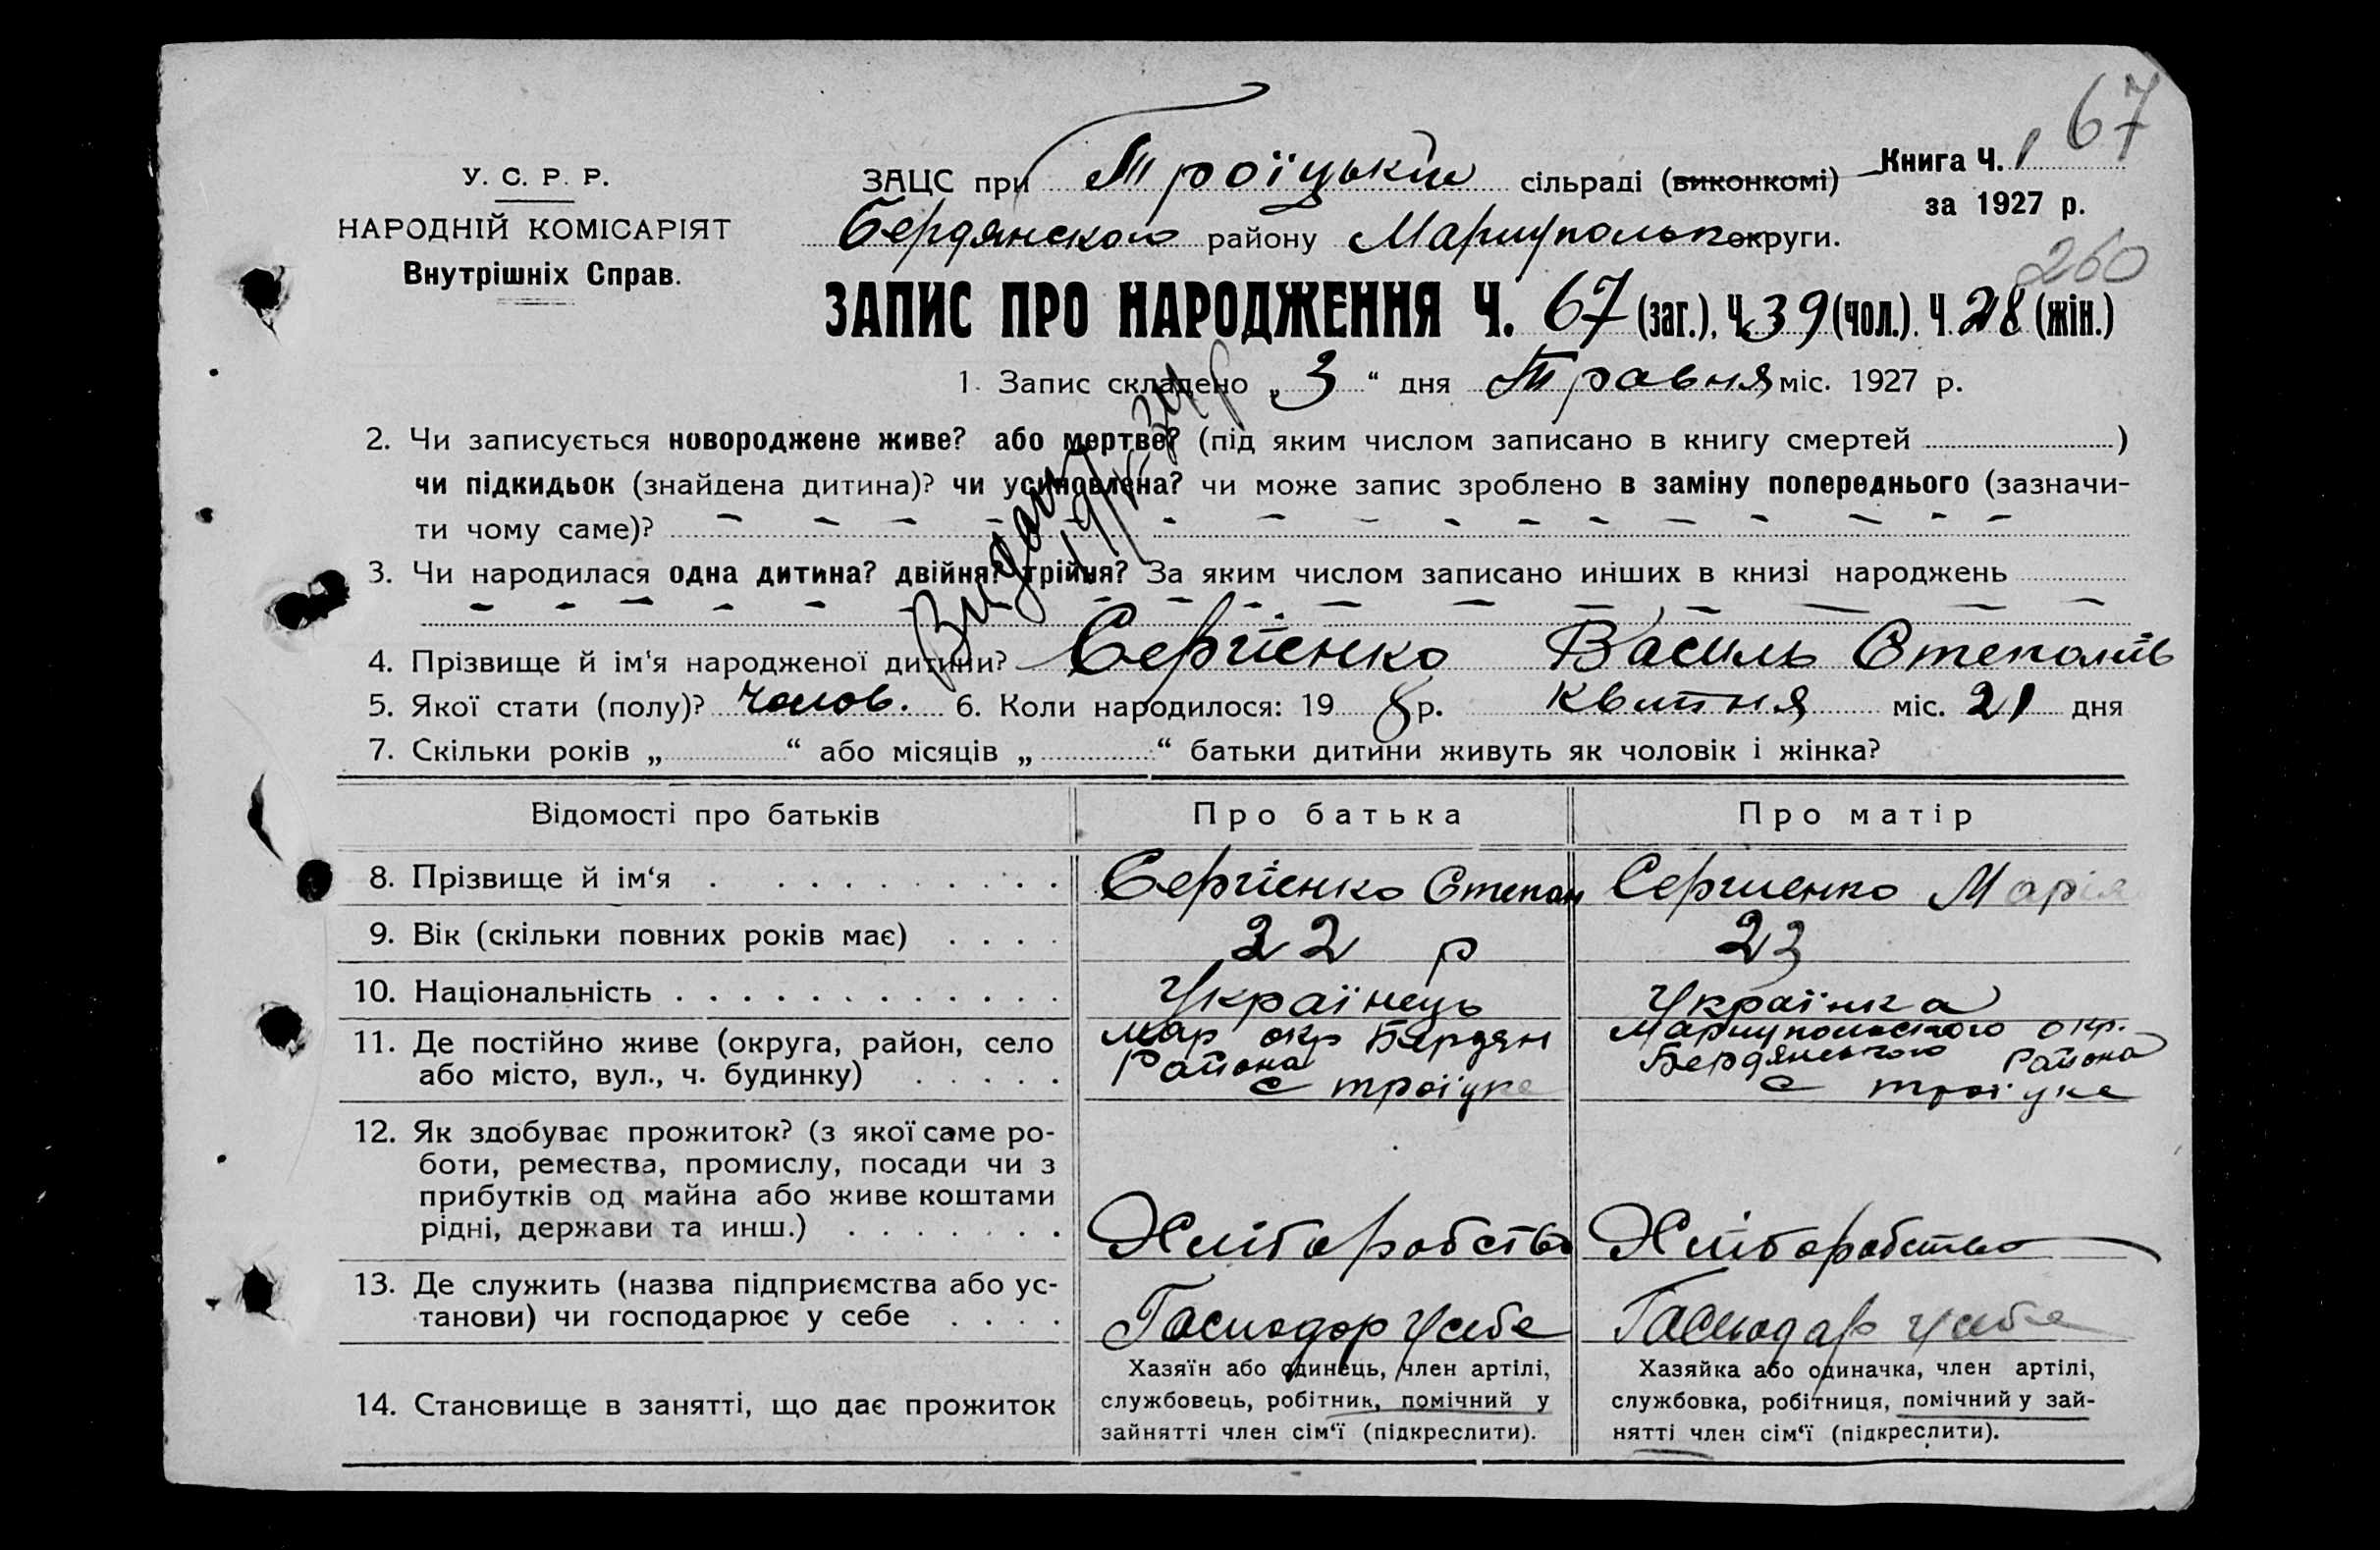 67
У. С. Р. Р.
НАРОДНІЙ КОМІСАРІЯТ
Внутрішніх Справ.
ЗАЦС при Троїцькій сільраді (виконкомі) Книга Ч. 1
за 1927 р.
Бердянского району Мариупольск округи.
260
ЗАПИС ПРО НАРОДЖЕННЯ Ч. 67 (заг.), Ч. 39 (чол.). Ч. 28 (жін.)
1. Запис складено „ 3 “ дня Травня міс. 1927 р.
2. Чи записується новороджене живе? або мертве? (під яким числом записано в книгу смертей )
чи підкидьок (знайдена дитина)? чи усиновлена? чи може запис зроблено в заміну попереднього (зазначи-
ти чому саме)? – – – – – – – – – – – – – –
3. Чи народилася одна дитина? двійня? трійня? За яким числом записано инших в книзі народжень
– – – – – – – – – – – – – –
4. Прізвище й ім'я народженої дитини? Сергієнко Василь Степанів
5. Якої стати (полу)? Чолов. 6. Коли народилося: 19 р. Квітня міс. 21 дня
7. Скільки років „ “ або місяців „ “ батьки дитини живуть як чоловік і жінка?
Відомості про батьків Про батька Про матір
8. Прізвище й ім‘я Сергієнко Степан Сергиенко Марія
9. Вік (скільки повних років має) 22 р 23
10. Національність Українець Українка
11. Де постійно живе (округа, район, село Мар окр Бердян Мариупольского окр.
або місто, вул., ч. будинку) Района с Троїцке Бердянського Района с Троїцке
12. Як здобуває прожиток? (з якої саме ро-
боти, ремества, промислу, посади чи з
прибутків од майна або живе коштами
рідні, держави та инш.) Хліборобство Хліборобство
13. Де служить (назва підприємства або ус-
танови) чи господарює у себе Господар у себе Господар у себе
14. Становище в занятті, що дає прожиток
Хазяїн або одинець, член артілі,
службовець, робітник, помічний у
зайнятті член сім‘ї (підкреслити).
Хазяйка або одиначка, член артілі,
службовка, робітниця, помічний у зай-
нятті член сім‘ї (підкреслити).